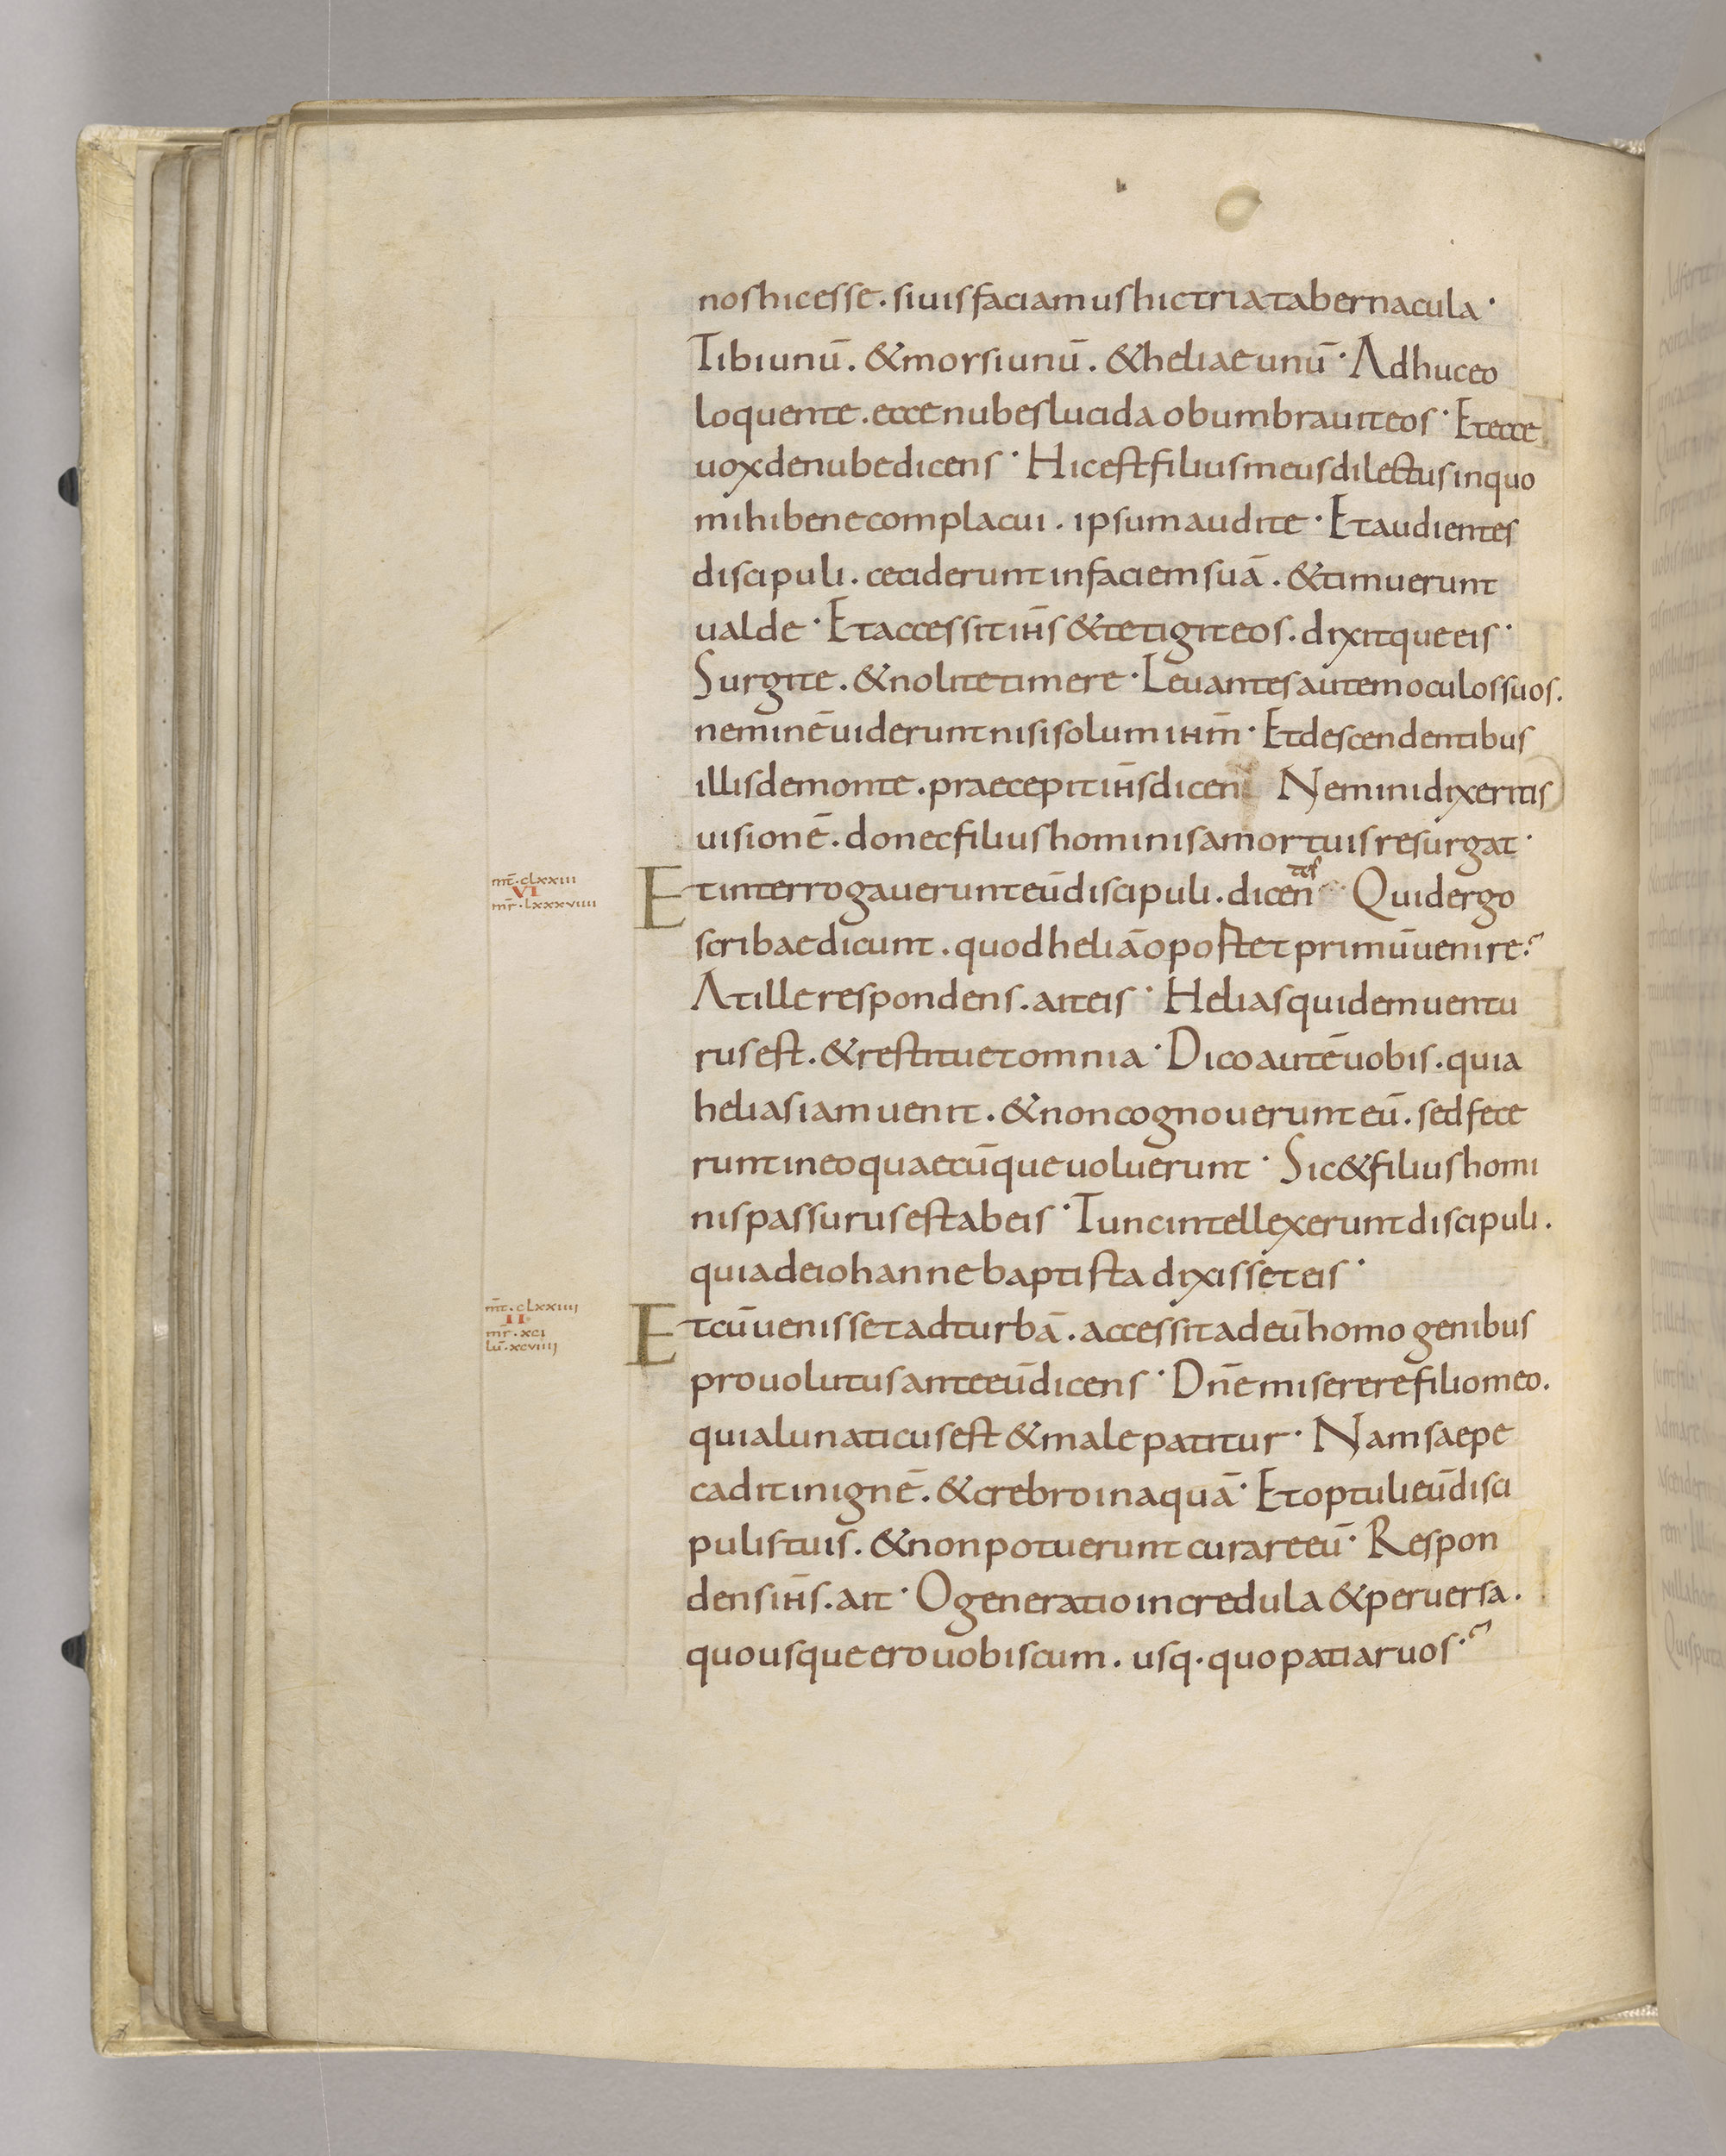 nos hic esse. si uis faciamus hic tria tabernacula·
Tibi unū. & morsi unū. & heliae unū· Adhuc eo
loquente. ecce nubes lucida obumbrauit eos· Et ecce
uox de nube dicens· Hic est filius meus dilectus in quo
mihi bene complacui. ipsum audite· Et audientes
discipuli. ceciderunt in faciem suā. & timuerunt
ualde· Et accessit ih̄s & tetigit eos. dixitque eis·
Surgite. & nolite timere· Leuantes autem oculos suos.
neminē uiderunt nisi solum ihm̄· Et descendentibus
illis de monte. praecepit ih̄s dicens Nemini dixeritis
uisionē. donec filius hominis a mortuis resurgat·
mt̄. clxxiii
VI
mr̄. lxxxviiii
Et interrogauerunt eū discipuli. dicentes Quid ergo
scribae dicunt. quod heliā oportet primū uenire?
At ille respondens. ait eis· Helias quidem uentu
rus est. & restituet omnia· Dico autē uobis. quia
helias iam uenit. & non cognouerunt eū. sed fece
runt in eo quaecūque uoluerunt· Sic & filius homi
nis passurus est ab eis· Tunc intellexerunt discipuli.
quia de iohanne baptista dixisset eis·
mt̄. clxxiiii
II
mr. xci
lū. xcviiii
Et cū uenisset ad turbā. accessit ad eū homo genibus
prouolutus ante eū dicens· Dn̄e miserere filio meo.
quia lunaticus est & male patitur· Nam saepe
cadit in ignē. & crebro in aquā· Et optuli eū disci
pulis tuis. & non potuerunt curare eū· Respon
dens ih̄s. ait· O generatio incredula & peruersa.
quousque ero uobiscum. usq· quo patiar uos?